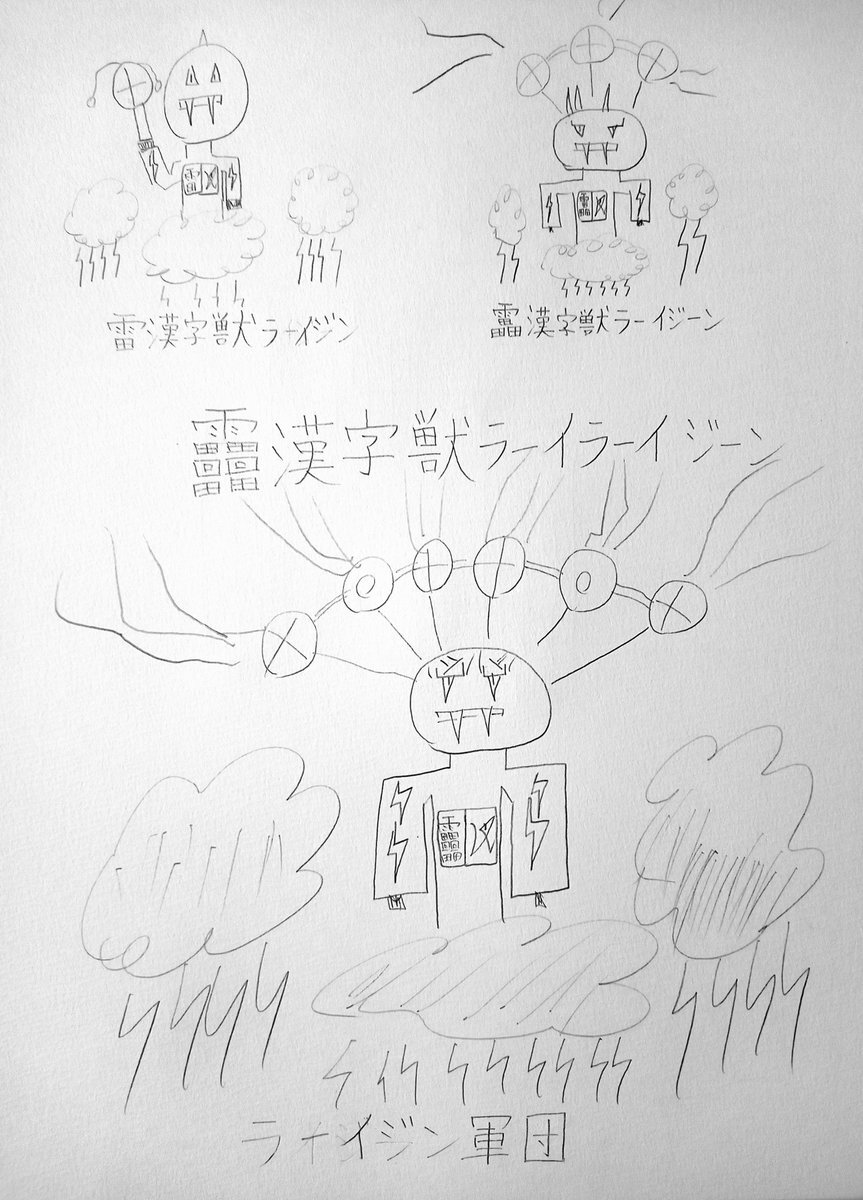 雷漢字獣ラーイジン
靁漢字獣ラーイジーン
䨓漢字獣ラーイラーイジーン
雷
靁
䨓
ラーイジン軍団